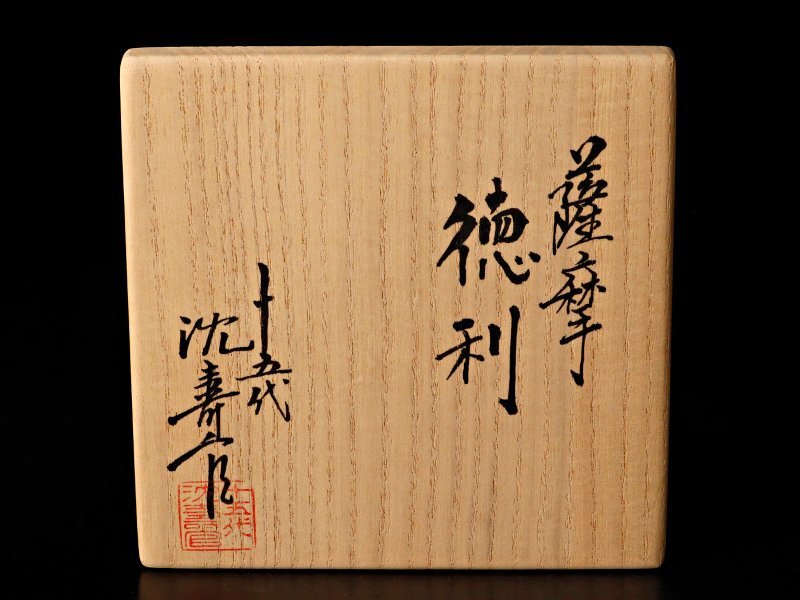 薩摩
徳利
十五代
沈壽官
十五代
沈壽官